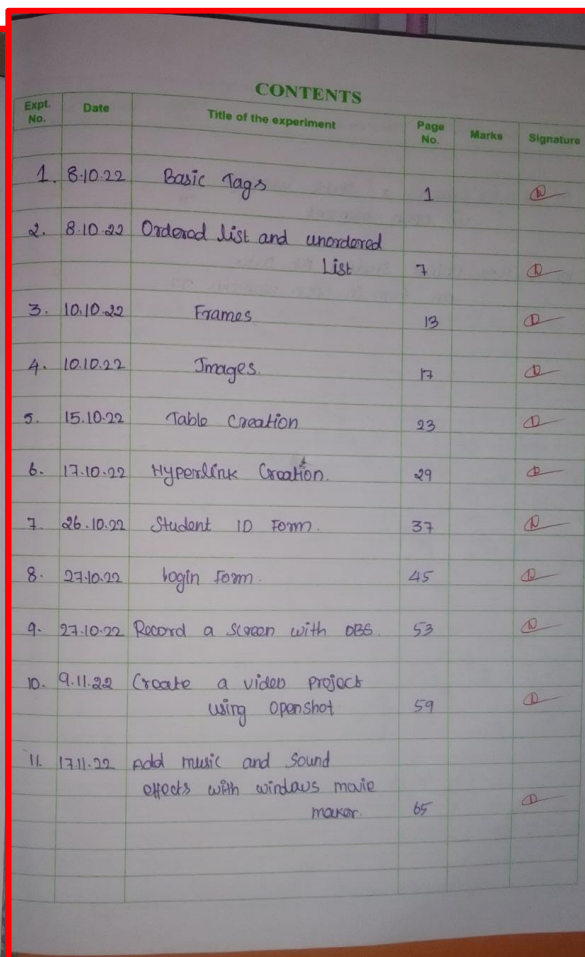 CONTENTS
Expt. No. Date Title of the experiment Page No. Marks Signature
1. 8.10.22 Basic Tags 1
2. 8.10.22 Ordered list and unordered
List 7
3. 10.10.22 Frames 13
4. 10.10.22 Images. 17
5. 15.10.22 Table Creation 23
6. 17.10.22 Hyperlink Creation. 29
7. 26.10.22 Student ID Form. 37
8. 27.10.22 login Form. 45
9. 27.10.22 Record a screen with OBS. 53
10. 9.11.22 Create a video project
using Openshot 59
11. 17.11.22 Add music and Sound
effects with windows movie
maker. 65